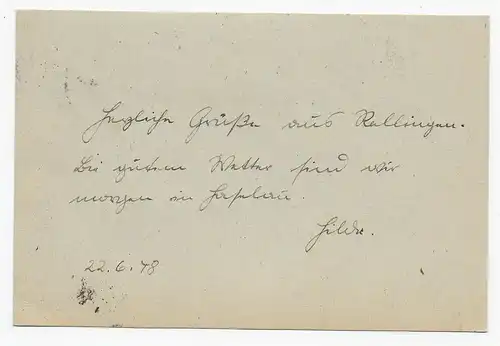 Herzliche Grüße aus Rellingen.
Bei gutem Wetter sind wir
morgen in Haselau.
Hilde.
22.6.48